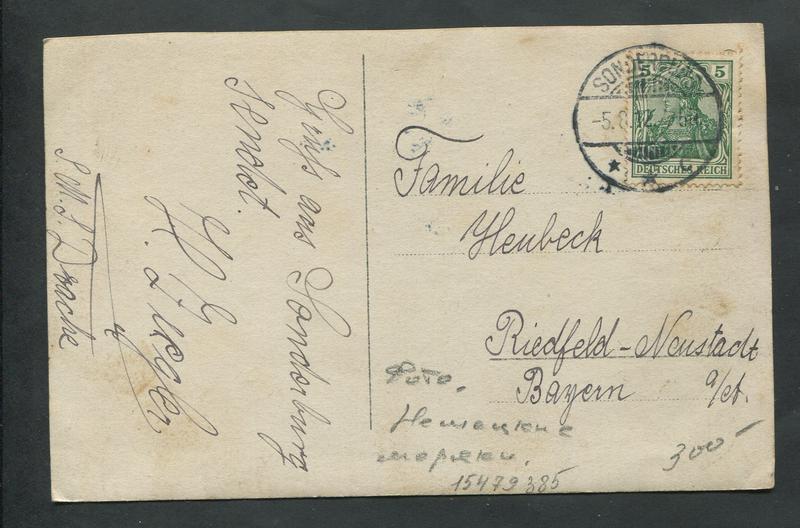 Gruß aus Sonderburg
sendet.
H. Ziegler
S.M.S. Drache
SONDERBURG
-5.8.12.
5 5
DEUTSCHES REICH
Familie
Heubeck
Riedfeld-Neustadt
Bayern a/ct.
Фото.
Немецкие
моряки.
15479385
300-